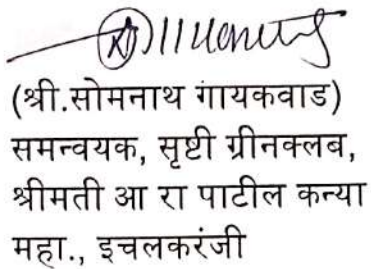 (श्री.सोमनाथ गायकवाड)
समन्वयक, सृष्टी ग्रीनक्लब,
श्रीमती आ रा पाटील कन्या
महा., इचलकरंजी